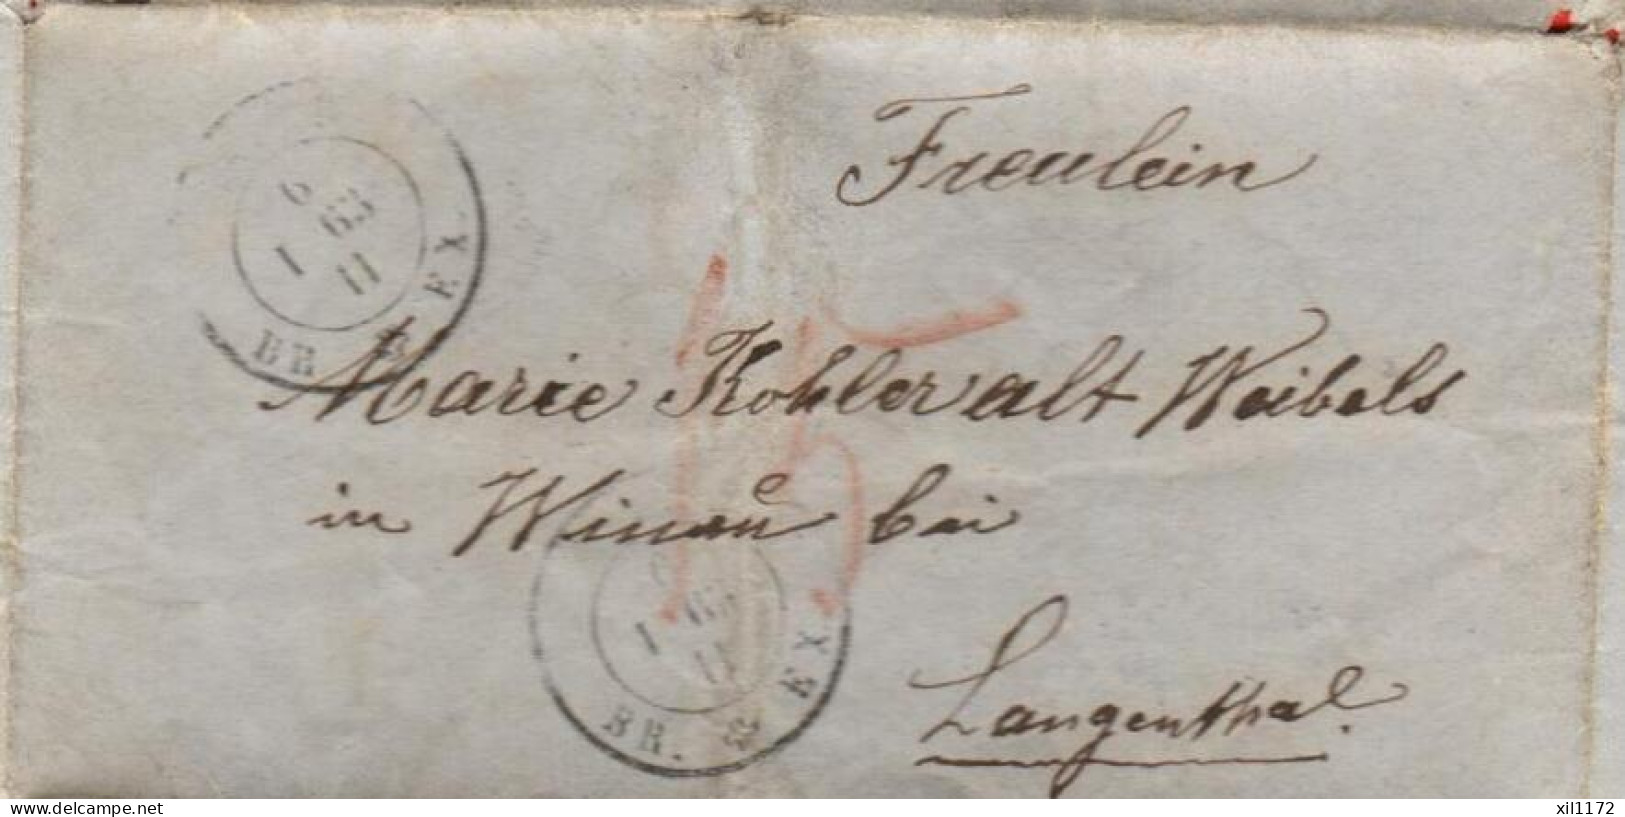 Freulein
6
63
1
11
BR. EX.
15
Marie Kohler alt Weibels
in Winau bei
1
63
11
BR. EX.
Langenthal.
delcampe.net
xil1172